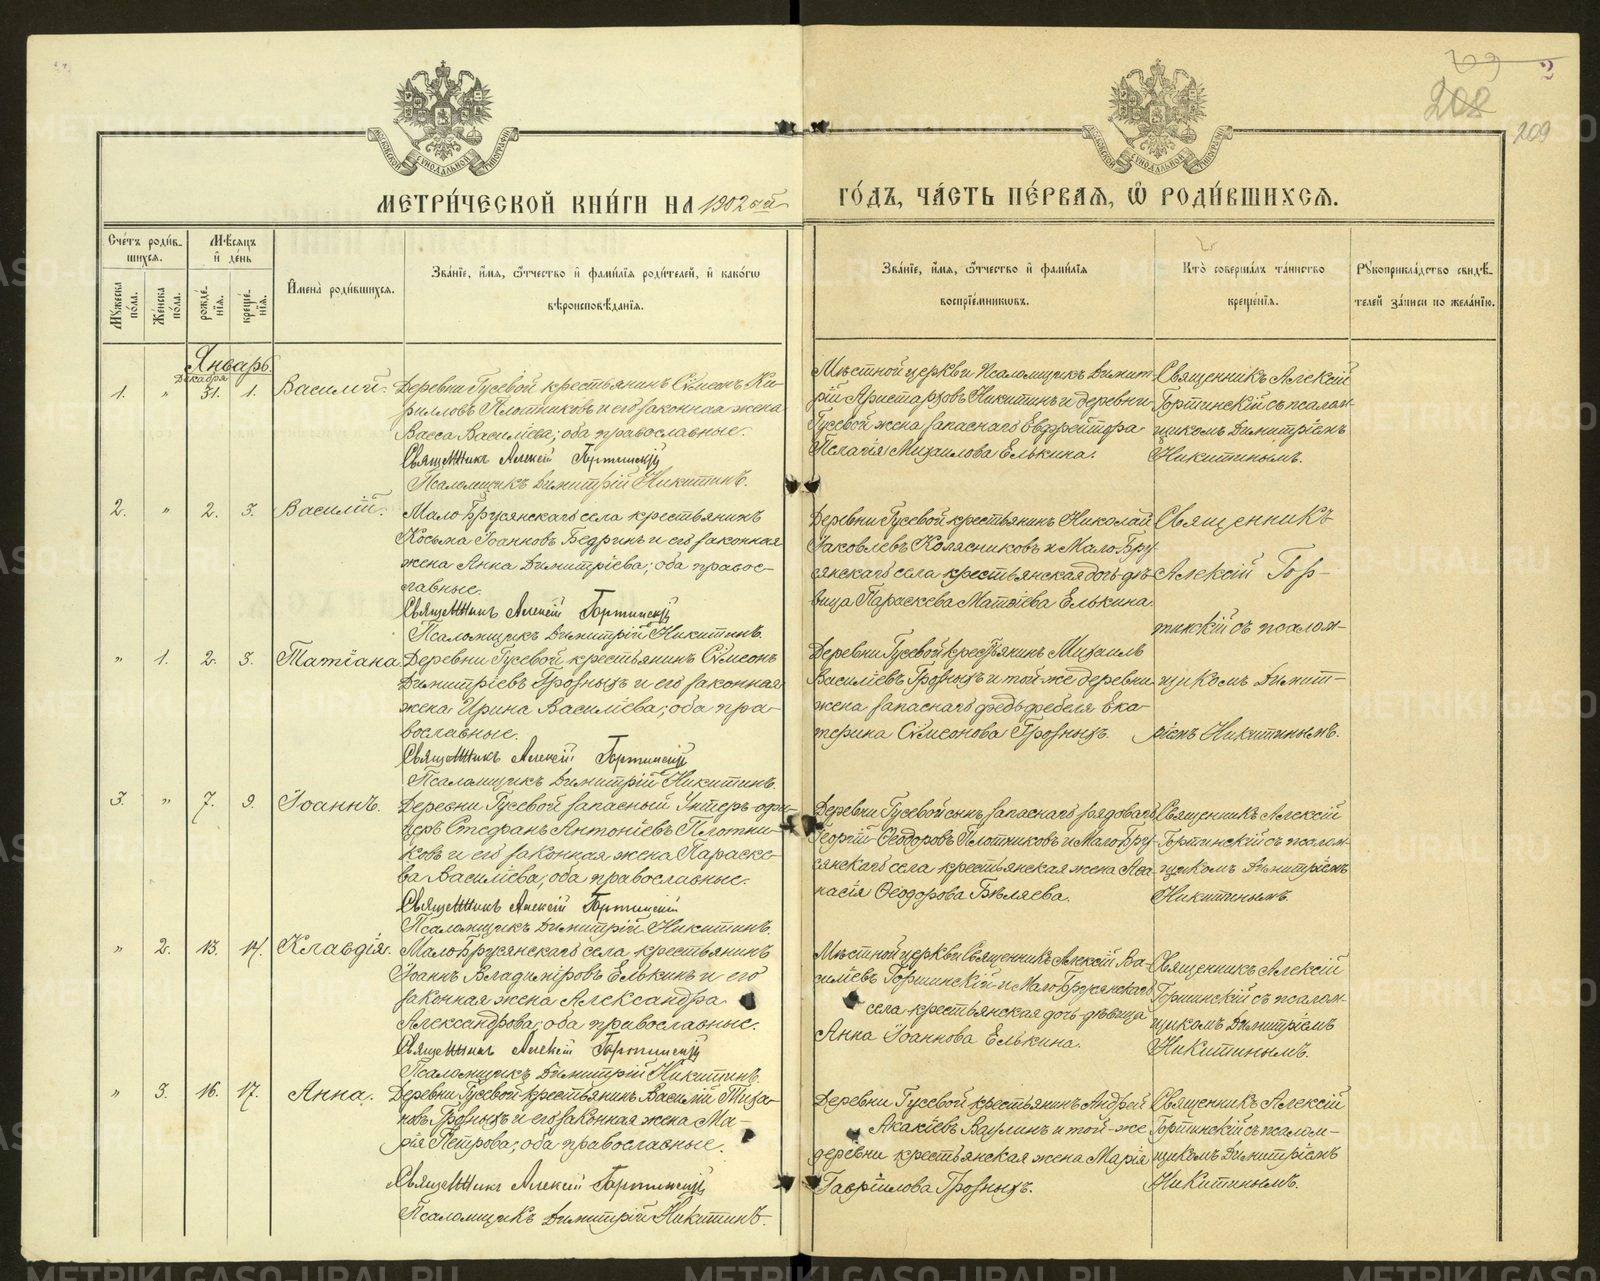 209
2
202
209
МОСКОВСКОЙ СѴНОДАЛЬНОЙ ТИПОГРАФІИ
МОСКОВСКОЙ СѴНОДАЛЬНОЙ ТИПОГРАФІИ
МЕТРИ́ЧЕСКОЙ КНИ́ГИ НА 1902 ой
ГО́ДЪ, ЧА́СТЬ ПЕ́РВАѦ, Ѡ҆ РОДИ́ВШИХСѦ.
Сче́тъ роди́в-
шихсѧ.
Мꙋ́жеска по́ла.
Же́нска по́ла.
Мѣ́сѧцъ и҆ де́нь
рожде́нїѧ.
креще́нїѧ.
И҆мена̀ роди́вшихсѧ.
Зва́нїе, и҆́мѧ, ѻ҆́тчество и҆ фами́лїѧ роди́телей, и҆ како́гѡ
вѣроисповѣ́данїѧ.
Зва́нїе, и҆́мѧ, ѻ҆́тчество и҆ фами́лїѧ
воспрїе́мникѡвъ.
Кто̀ соверша́лъ та́инство
креще́нїѧ.
Рꙋкоприкла́дство свидѣ́-
телей за́писи по жела́нїю.
Январь.
Декабря
1. " 31. 1. Василій.
Деревни Гусевой крестьянинъ Сѵмеонъ Ки-
рилловъ Плотниковъ и его законная жена
Васса Василіева; оба православные.
Священникъ Алексій Гортинскій
Псаломщикъ Димитрій Никитинъ.
Мѣстной церкви Псаломщикъ Димит-
рій Аристарховъ Никитинъ и деревни
Гусевой жена запаснаго Ефрейтора
Пелагія Михаилова Елькина.
Священникъ Алексій
Гортинскій съ псалом-
щикомъ Димитріемъ
Никитинымъ.
2. " 2. 3. Василій.
Мало-Брусянскаго села крестьянинъ
Косьма Іоанновъ Бедринъ и его законная
жена Анна Димитріева; оба правос-
лавные.
Священникъ Алексій Гортинскій
Псаломщикъ Димитрій Никитинъ.
Деревни Гусевой крестьянинъ Николай
Іаковлевъ Колясниковъ и Мало-Бру-
сянскаго села крестьянская дочь дѣ-
вица Параскева Матѳіева Елькина.
Священникъ
Алексій Гор-
тинскій съ псалом-
" 1. 2. 3. Татіана.
Деревни Гусевой крестьянинъ Сѵмеонъ
Димитріевъ Грозныхъ и его законная
жена Ирина Василіева; оба пра-
вославные.
Священникъ Алексій Гортинскій
Псаломщикъ Димитрій Никитинъ.
Деревни Гусевой крестьянинъ Михаилъ
Василіевъ Грозныхъ и той же деревни
жена запаснаго фельдфебеля Ека-
терина Сѵмеонова Грозныхъ.
щикомъ Димит-
ріемъ Никитинымъ.
3. " 7. 9. Іоаннъ.
Деревни Гусевой запасный Унтеръ-офи-
церъ Стефанъ Антоніевъ Плотни-
ковъ и его законная жена Параске-
ва Василіева; оба православные.
Священникъ Алексій Гортинскій
Псаломщикъ Димитрій Никитинъ.
Деревни Гусевой сынъ запаснаго рядоваго
Георгій Ѳеодоровъ Плотниковъ и Мало-Бру-
сянскаго села крестьянская жена Аѳа-
насія Ѳеодорова Бѣляева.
Священникъ Алексій
Гортинскій съ псалом-
щикомъ Димитріемъ
Никитинымъ.
" 2. 13. 14. Клавдія.
Мало-Брусянскаго села крестьянинъ
Іоаннъ Владиміровъ Елькинъ и его
законная жена Александра
Александрова; оба православные.
Священникъ Алексій Гортинскій
Псаломщикъ Димитрій Никитинъ.
Мѣстной церкви Священникъ Алексій Ва-
силіевъ Гортинскій и Мало-Брусянскаго
села крестьянская дочь дѣвица
Анна Іоаннова Елькина.
Священникъ Алексій
Гортинскій съ псалом-
щикомъ Димитріемъ
Никитинымъ.
" 3. 16. 17. Анна.
Деревни Гусевой крестьянинъ Василій Тиха-
новъ Грозныхъ и его законная жена Ма-
рія Петрова; оба православные.
Священникъ Алексій Гортинскій
Псаломщикъ Димитрій Никитинъ.
Деревни Гусевой крестьянинъ Андрей
Акакіевъ Ваулинъ и той-же
деревни крестьянская жена Марія
Гавріилова Грозныхъ.
Священникъ Алексій
Гортинскій съ псалом-
щикомъ Димитріемъ
Никитинымъ.
METRIKI.GASO-URAL.RU